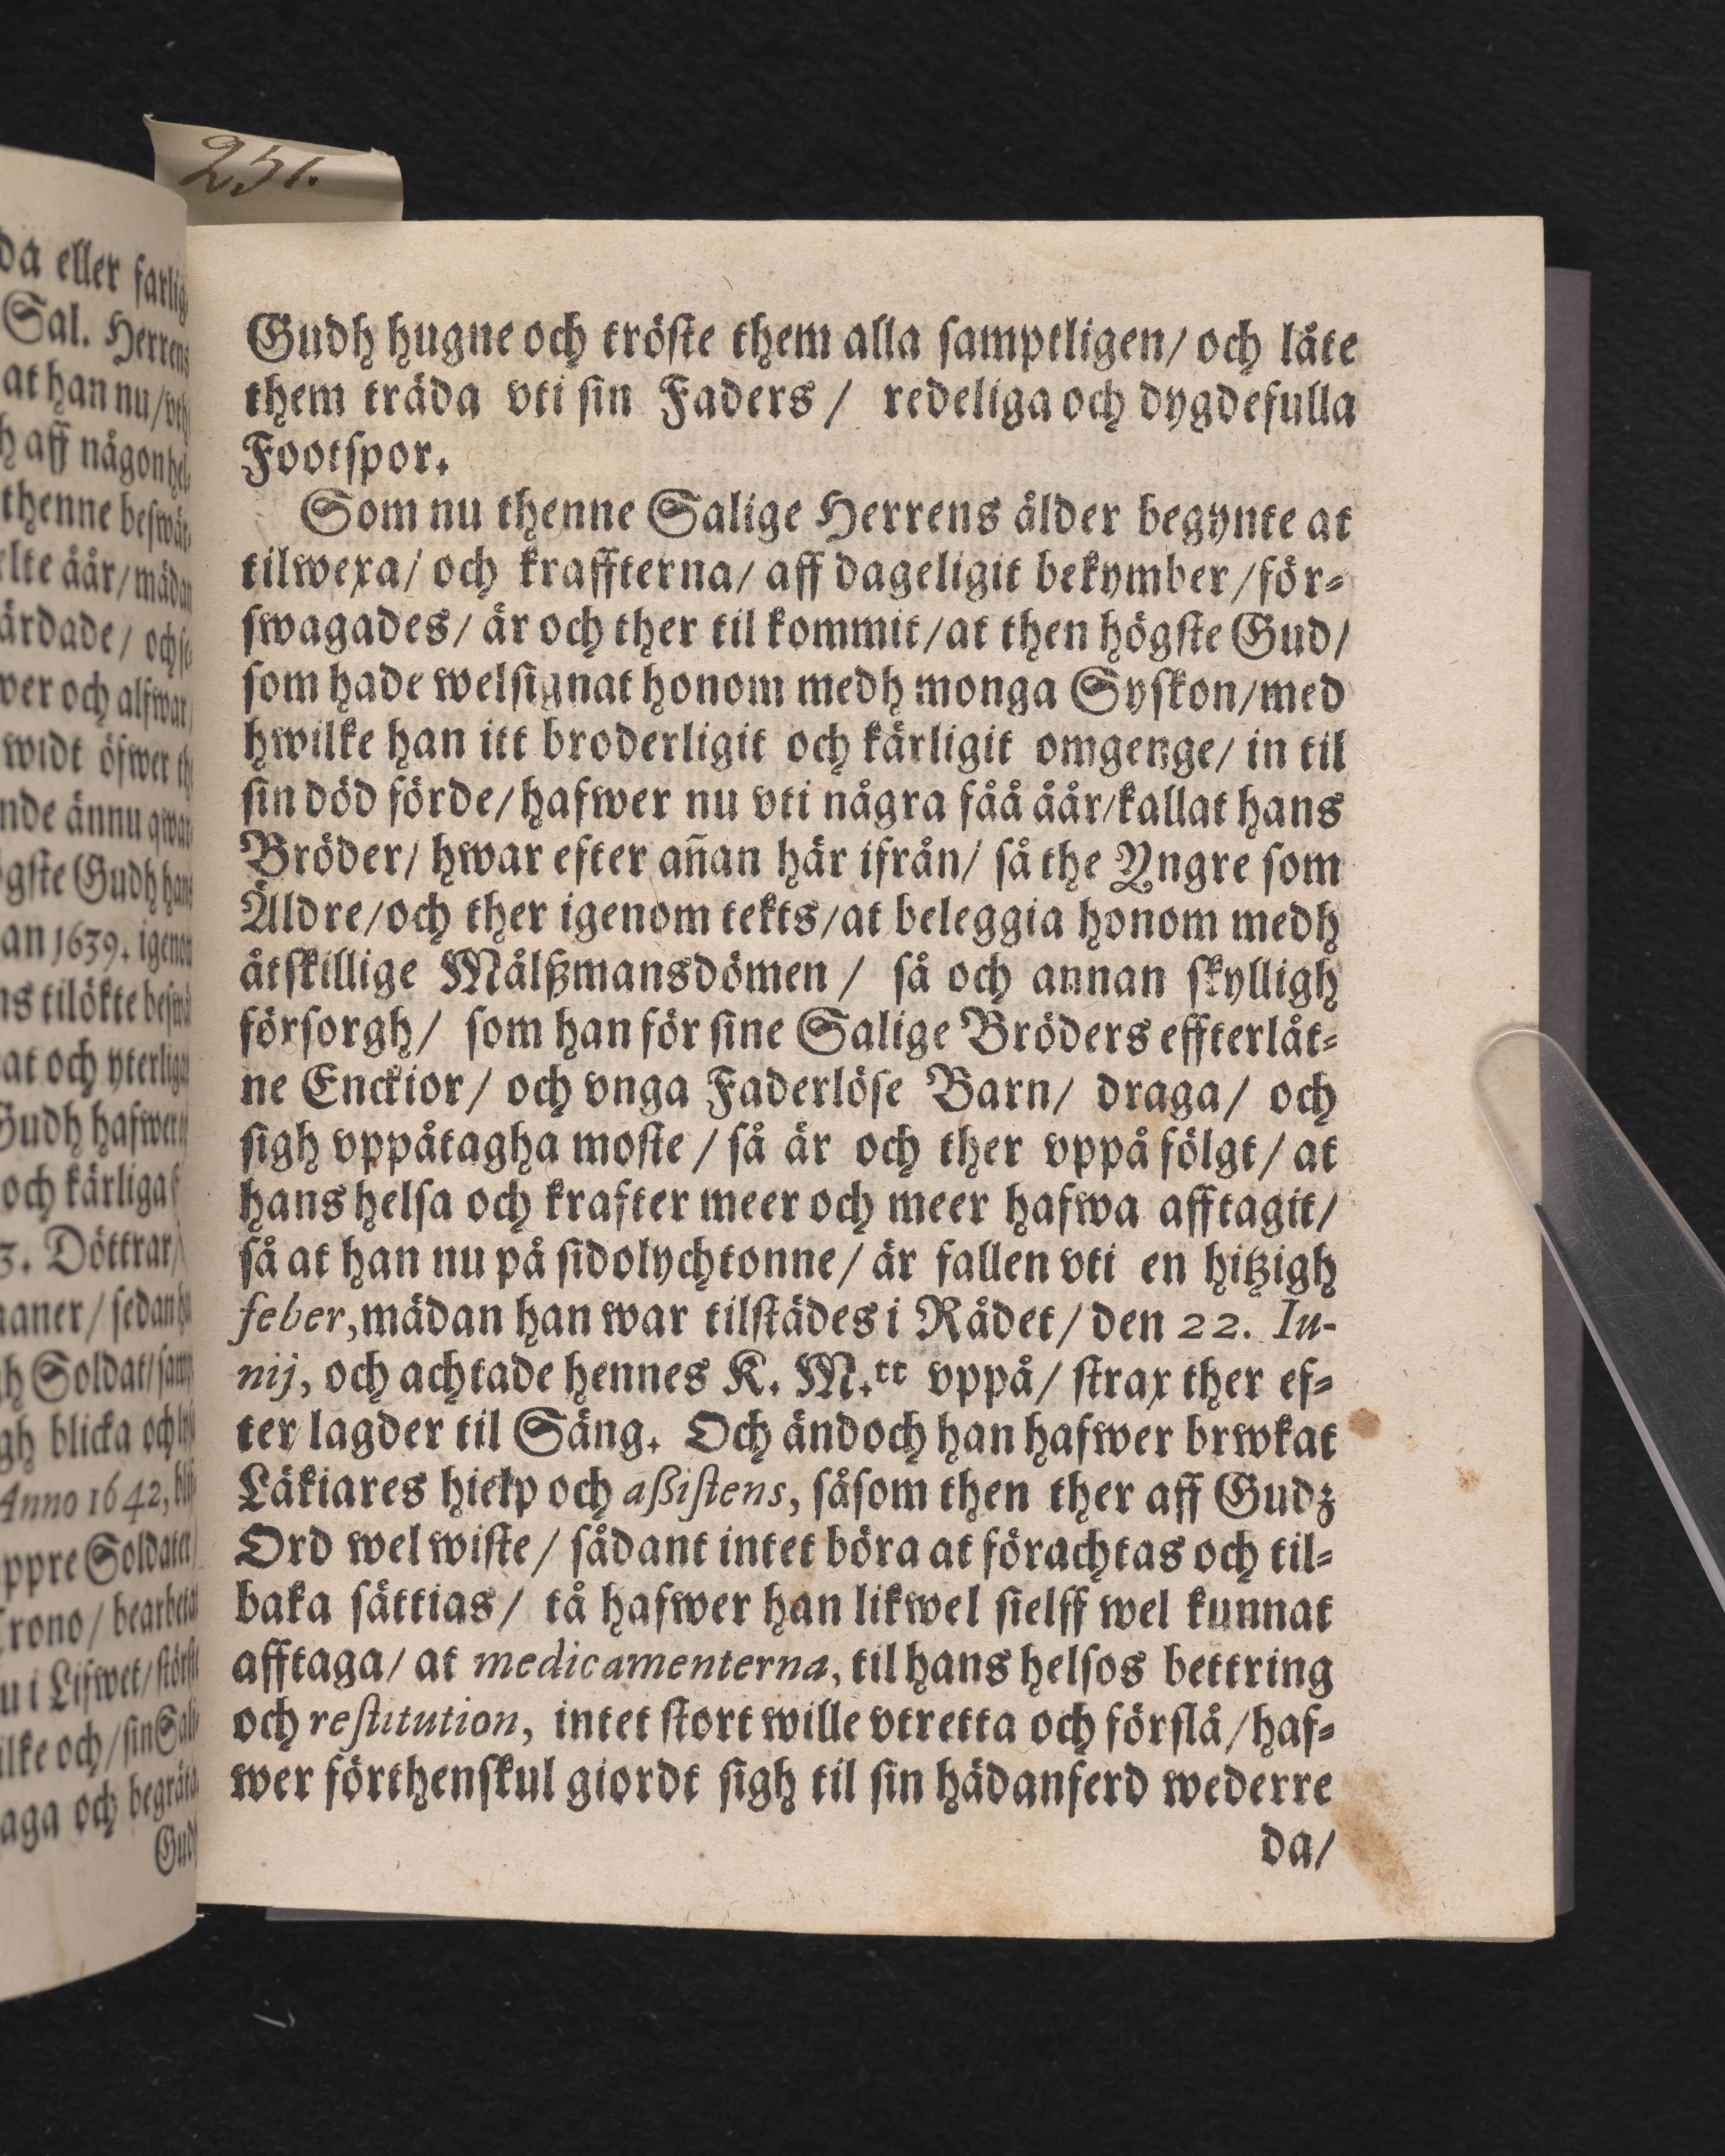 251.
da eller farlig
Sal. Herrens
at han nu/vth
h aff någon hel-
thenne beswär-
elte åår/mädan
wer och alfwar
widt öfwer th
nde ännu qwar
gste Gudh hans
an 1639. igenom
ns tilökte beswä
at och yterliga
Gudh hafwer
och kärliga
3. Döttrar/
maner/sedan
gh Soldat/
gh blicka och
Anno 1642,
ppre Soldater/
Crono/bearbetat
u i Lifwet/störst
ilke och/sin Sali
aga och begråta
Gudh
Gudh hugne och tröste them alla samptligen/ och låte
them träda vti sin Faders/ redeliga och dygdefulla
Footspor.
Som nu thenne Salige Herrens ålder begynte at
tilwexa/ och kraffterna/ aff dageligit bekymber/för-
swagades/ är och ther til kommit/at then högste Gud/
som hade welsignat honom medh monga Syskon/med
hwilke han itt broderligit och kärligit omgenge/ in til
sin död förde/hafwer nu vti några fåå åår/kallat hans
Bröder/ hwar efter añan här ifrån/ så the Yngre som
Äldre/och ther igenom tekts/at beleggia honom medh
åtskillige Målßmansdömen/ så och annan skylligh
försorgh/ som han för sine Salige Bröders effterlåt-
ne Enckior/ och vnga Faderlöse Barn/ draga/ och
sigh vppåtagha moste/så är och ther vppå fölgt/at
hans helsa och krafter meer och meer hafwa afftagit/
så at han nu på sidolychtonne/är fallen vti en hitzigh
feber,mädan han war tilstädes i Rådet/den 22. Iu-
nij, och achtade hennes K. M.tt vppå/ strax ther ef-
ter lagder til Säng. Och ändoch han hafwer brwkat
Läkiares hielp och aßistens, såsom then ther aff Gudz
Ord wel wiste/ sådant intet böra at förachtas och til-
baka sättias/ tå hafwer han likwel sielff wel kunnat
afftaga/ at medicamenterna, til hans helsos bettring
och restitution, intet stort wille vtretta och förslå/haf-
wer förthenskul giordt sigh til sin hädanferd wederre
da/